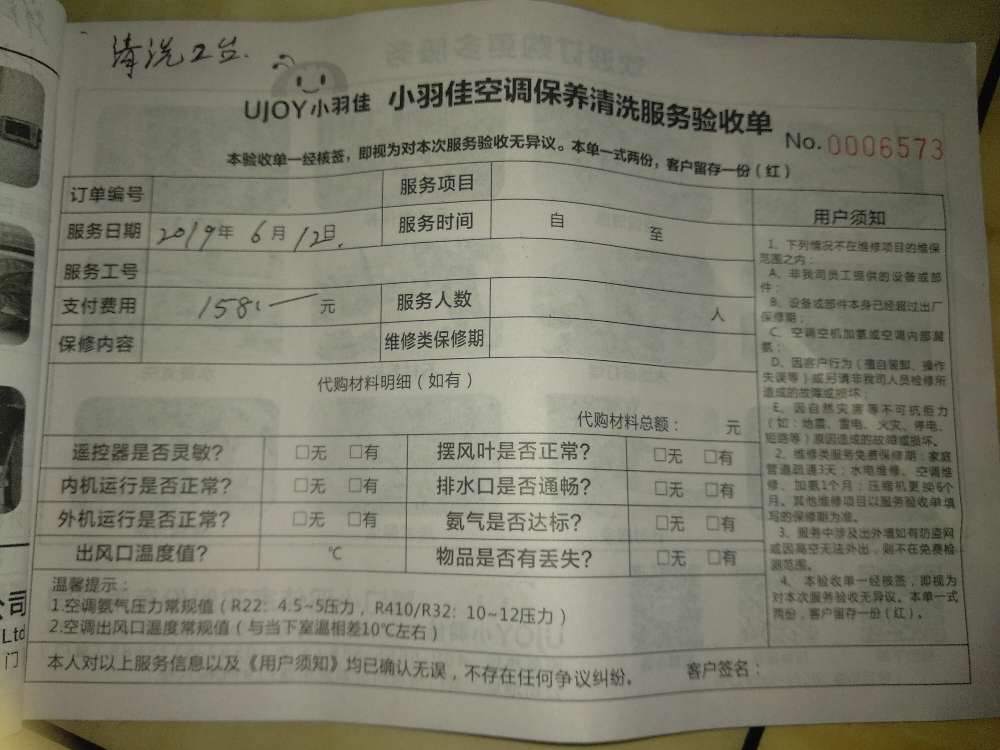 清洗2台.
UJOY小羽佳 小羽佳空调保养清洗服务验收单
No. 0006573
本验收单一经核签，即视为对本次服务验收无异议。本单一式两份，客户留存一份（红）
订单编号 服务项目
服务日期 2019年 6月 12日. 服务时间 自 至
服务工号
支付费用 158 元 服务人数 人
保修内容 维修类保修期
代购材料明细（如有）
代购材料总额： 元
遥控器是否灵敏? □无 □有 摆风叶是否正常? □无 □有
内机运行是否正常? □无 □有 排水口是否通畅? □无 □有
外机运行是否正常? □无 □有 氨气是否达标? □无 □有
出风口温度值? ℃ 物品是否有丢失? □无 □有
温馨提示：
1.空调氨气压力常规值（R22：4.5~5压力，R410/R32：10~12压力）
2.空调出风口温度常规值（与当下室温相差10℃左右）
本人对以上服务信息以及《用户须知》均已确认无误，不存在任何争议纠纷。 客户签名：
用户须知
1、下列情况不在维修项目的维保
范围之内：
A、非我司员工提供的设备或部
件；
B、设备或部件本身已经超过出厂
保修期；
C、空调空机加氨或空调内部漏
氨；
D、因客户行为（擅自装卸、操作
失误等）或另请非我司人员检修所
造成的故障或损坏；
E、因自然灾害等不可抗拒力
（如：地震、雷电、火灾、停电、
短路等）原因造成的故障或损坏。
2、维修类服务免费保修期：家庭
管道疏通3天；水电维修、空调维
修、加氨1个月；压缩机更换6个
月。其他维修项目以服务验收单填
写的保修期为准。
3、服务中涉及出外墙如有防盗网
或因高空无法外出，则不在免费检
测范围。
4、本验收单一经核签，即视为
对本次服务验收无异议。本单一式
两份，客户留存一份（红）。
公司
Ltd
门